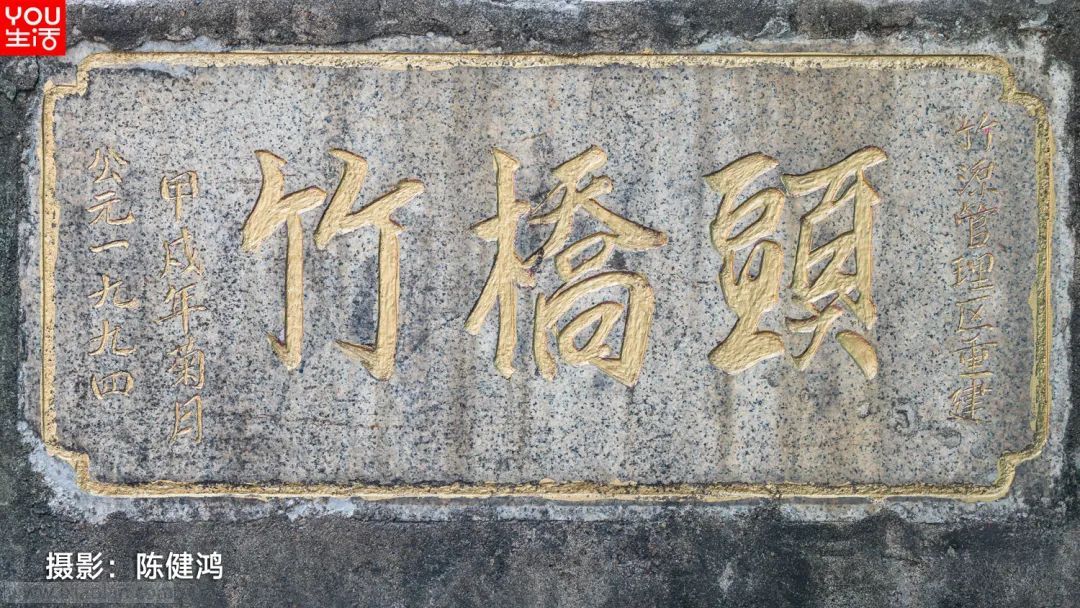 YOU
生活
竹源管理区重建
竹橋頭
甲戌年菊月
公元一九九四
摄影：陈健鸿